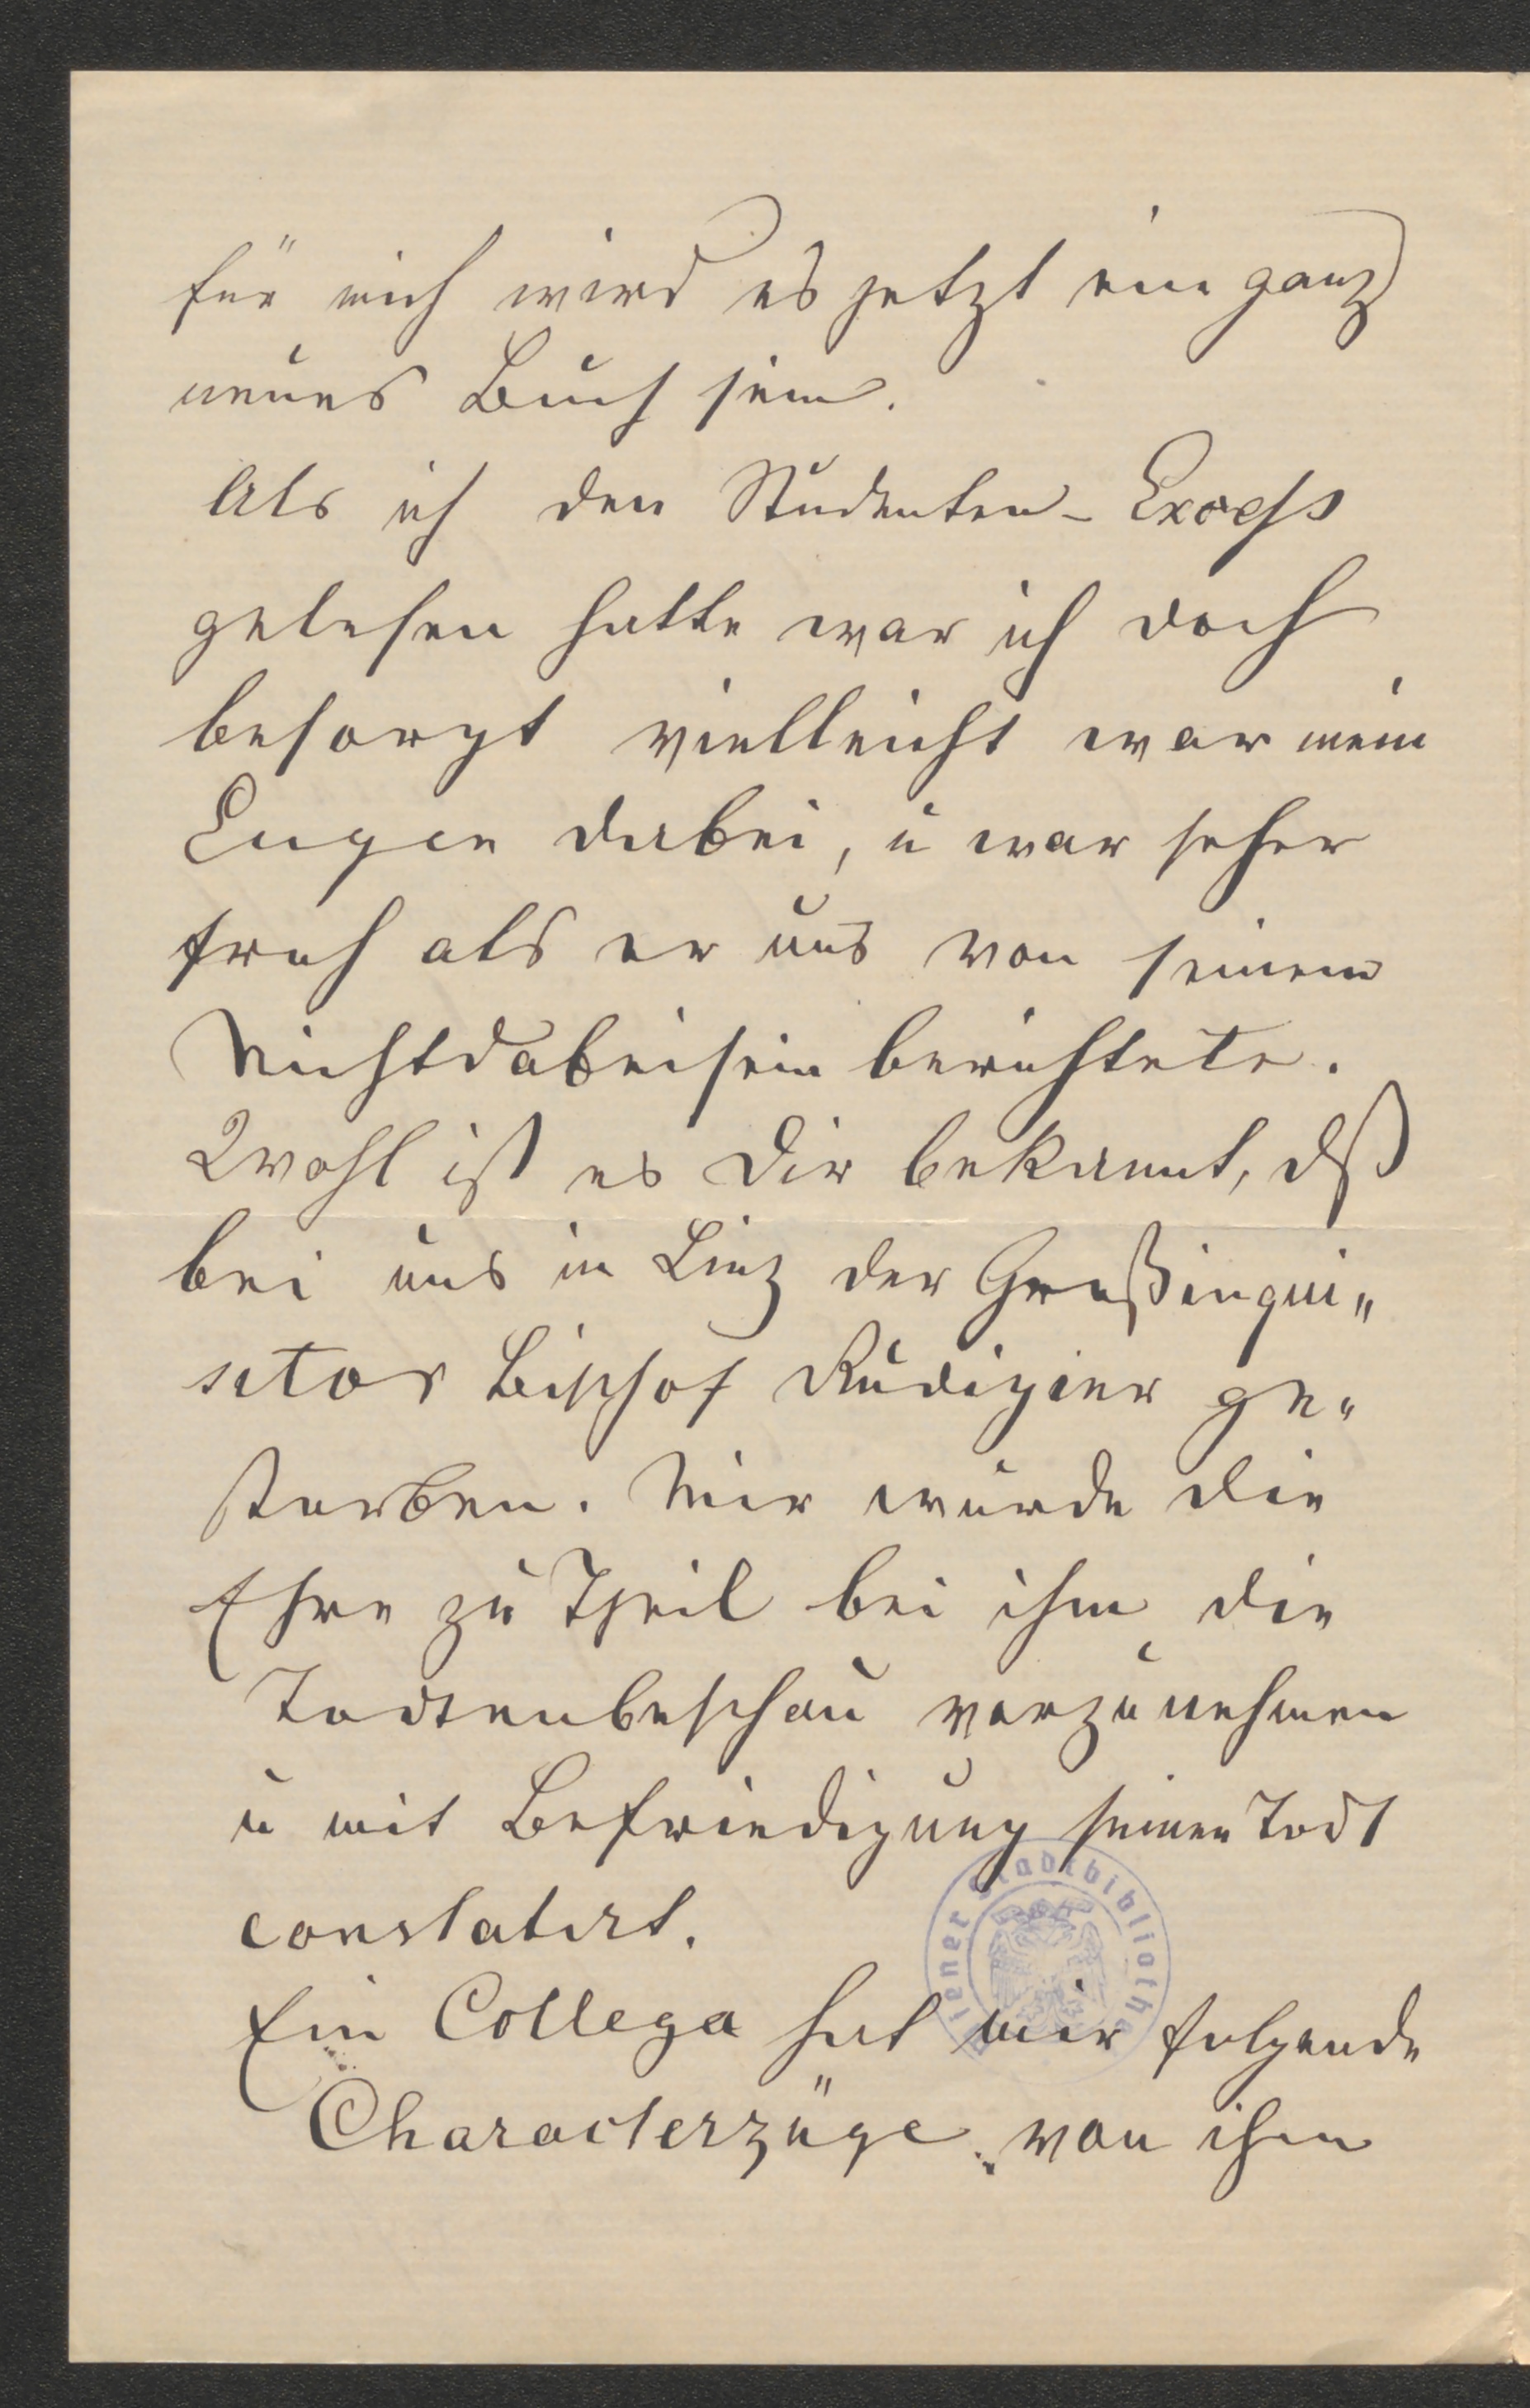 für mich wird es jetzt ein ganz
neues Buch sein.
Als ich den Studenten-Excess
gelesen hatte war ich doch
besorgt vielleicht war mein
Eugen dabei, u war seher
froh als er uns von seinem
Nichtdabeisein berichtete.
Wohl ist es Dir bekannt, dß
bei uns in Linz der Großinqui„
sitor Bischof Rudigier ge„
storben. Mir wurde die
Ehre zu Theil bei ihm die
Todtenbeschau vorzunehmen
u mit Befriedigung seinen Todt
constatirt.
Wiener Stadtbibliothek
Ein Collega hat mir folgende
Characterzüge von ihm